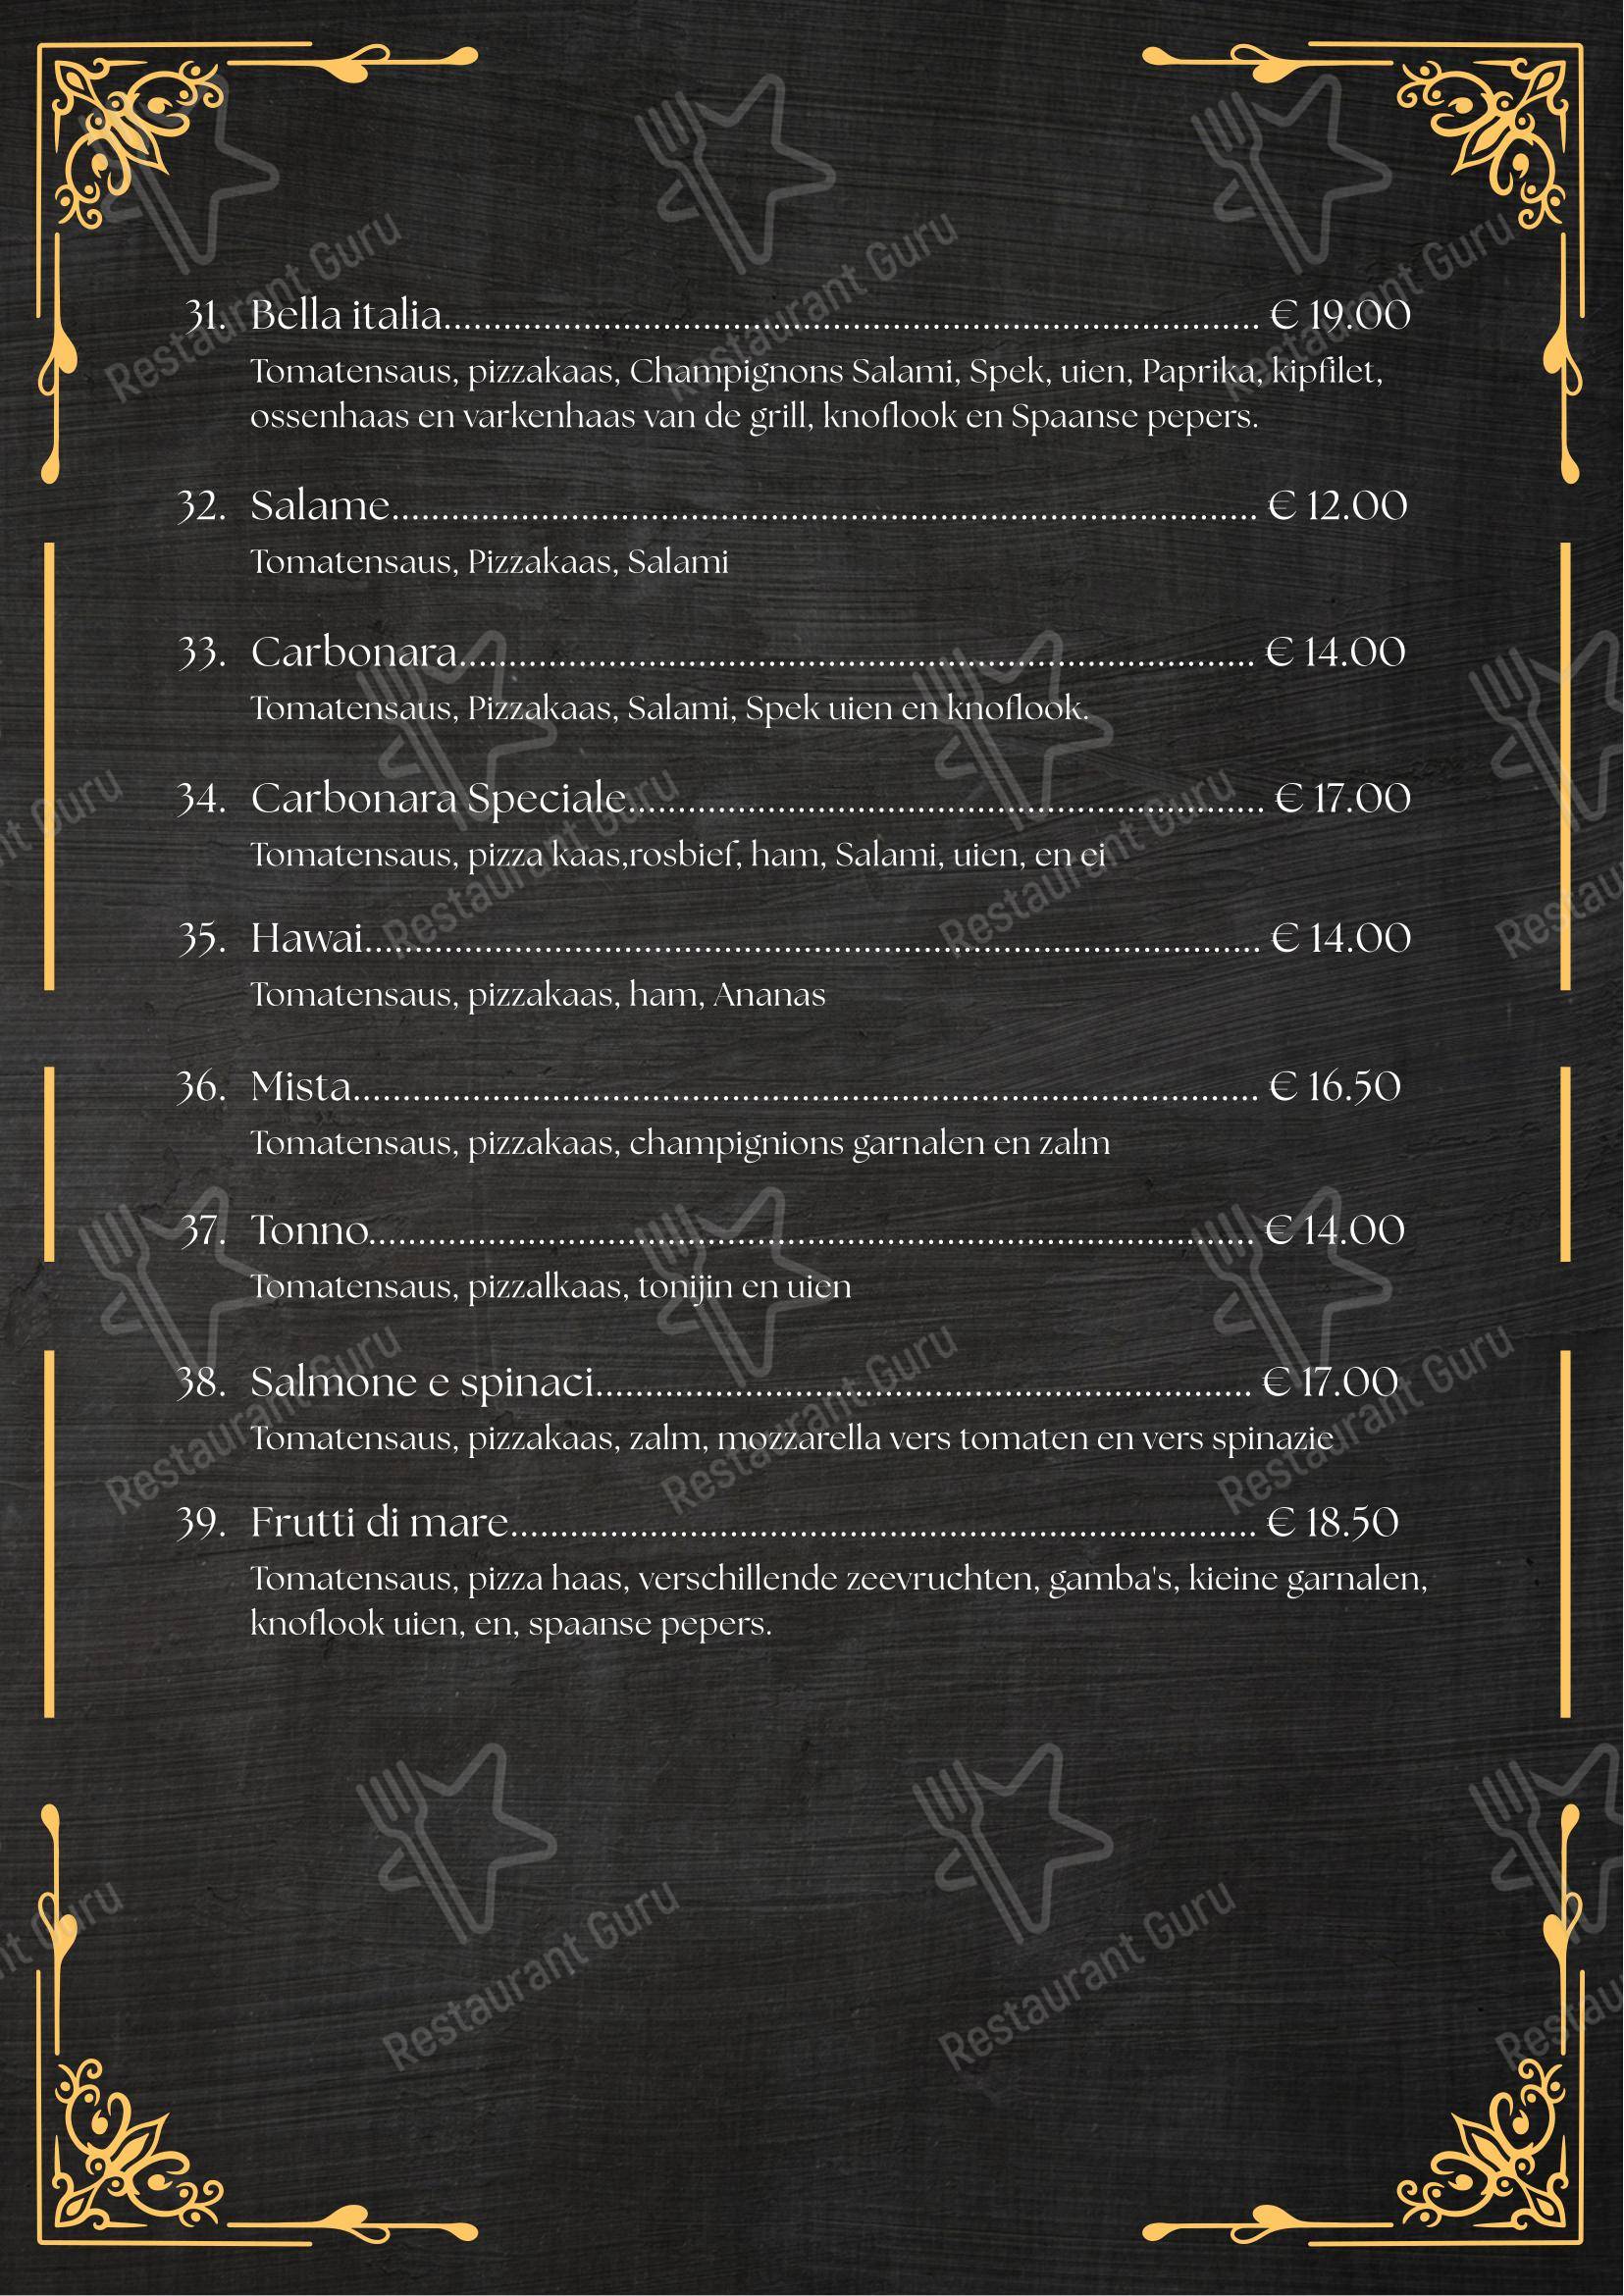 31. Bella italia........................................................................................ € 19.00
Tomatensaus, pizzakaas, Champignons Salami, Spek, uien, Paprika, kipfilet,
ossenhaas en varkenhaas van de grill, knoflook en Spaanse pepers.
32. Salame........................................................................................ € 12.00
Tomatensaus, Pizzakaas, Salami
33. Carbonara........................................................................................ € 14.00
Tomatensaus, Pizzakaas, Salami, Spek uien en knoflook.
34. Carbonara Speciale................................................................ € 17.00
Tomatensaus, pizza kaas,rosbief, ham, Salami, uien, en ei
35. Hawai........................................................................................ € 14.00
Tomatensaus, pizzakaas, ham, Ananas
36. Mista........................................................................................ € 16.50
Tomatensaus, pizzakaas, champignions garnalen en zalm
37. Tonno........................................................................................ € 14.00
Tomatensaus, pizzalkaas, tonijin en uien
38. Salmone e spinaci.................................................................. € 17.00
Tomatensaus, pizzakaas, zalm, mozzarella vers tomaten en vers spinazie
39. Frutti di mare........................................................................... € 18.50
Tomatensaus, pizza haas, verschillende zeevruchten, gamba's, kieine garnalen,
knoflook uien, en, spaanse pepers.
Restaurant Guru